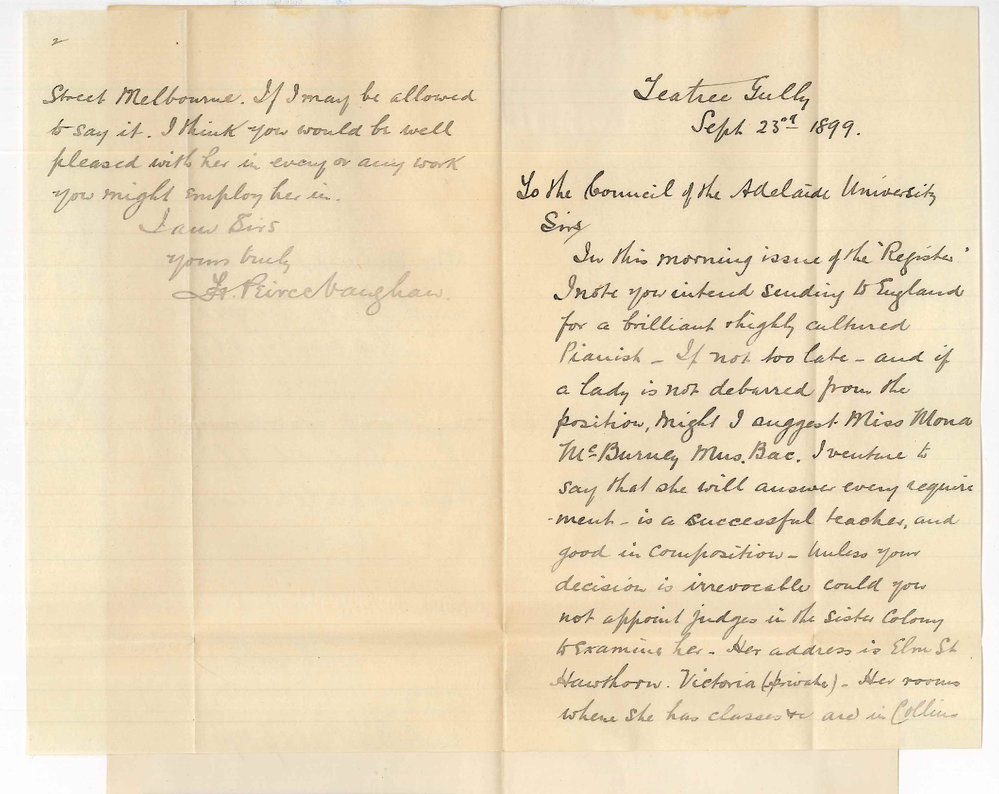 Teatree Gully
Sept 23rd 1899.
To the Council of the Adelaide University
Sirs
In this morning issue of the "Register"
I note you intend sending to England
for a brilliant & highly cultured
Pianist - If not too late - and if
a lady is not debarred from the
position, might I suggest Miss Mona
McBurney Mus. Bac. I venture to
say that she will answer every require
-ment - is a successful teacher, and
good in composition - Unless your
decision is irrevocable could you
not appoint judges in the Sister Colony
to examine her - Her address is Elm St
Hawthorn. Victoria (private) - Her rooms
where she has classes &c are in Collins
2
Street Melbourne. If I may be allowed
to say it. I think you would be well
pleased with her in every or any work
you might employ her in.
I am Sirs
yours truly
Peirce Vaughan.